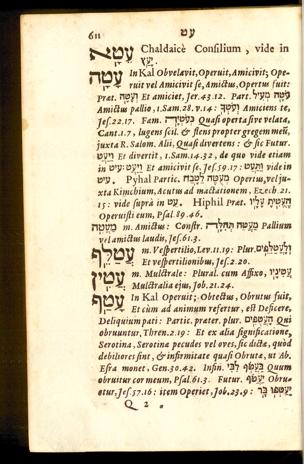 611 עט
עטא Chaldaicè Consilium, vide in
יעץ
עטה In Kal Obvelavit, Operuit, Amicivit; Ope-
ruit vel Amicivit se, Amictus, Opertus fuit:
Prat. ועטה Et amiciet, Jer.43.12. Part.
Amictus pallio, 1.Sam.28.v.14: Amiciens te,
Jes.22.17. Fam. כעטיה Quasi operta sive velata,
Cant.1.7, lugens scil. & flens propter gregem meũ,
juxta R. Salom. Alii, Quasi divertens: & sic Futur.
ויעט Et divertit, 1.Sam.14.32, de quo vide etiam
in עיט: ויעט Et amicivit se, Jes.59.17: vide in
עיט. Pyhal Partic. מעטה לטבח Opertus, vel ju-
xta Kimchium, Acutus ad mactationem, Ezech.21.
15: vide suprà in עט. Hiphil Prat. העטית עליו
Operuisti eum, Psal.89.46.
מעטה m. Amictus: Constr. מעטה תהלה Pallium
vel amictus laudis, Jes.61.3.
עטלף m. Vespertilio, Lev.11.19: Plur. ולעטלפים
Et vespertilionibus, Jes.2.20.
עטין m. Mulctrale: Plural. cum Affixo, עטיניו
Mulctralia ejus, Job.21.24.
עטף In Kal Operuit; Obtectus, Obrutus fuit,
Et cùm ad animum refertur, est Deficere,
Deliquium pati: Partic. prater. plur. העטופים Qui
obruuntur, Thren.2.19: Et ex alia significatione,
Serotina, Serotina pecudes vel oves, sic dicta, quòd
debiliores sint, & infirmitate quasi Obruta, ut Ab.
Esra monet, Gen.30.42. Infin. בעטף לבי Quum
obruitur cor meum, Psal.61.3. Futur. יעטוף Obru-
etur, Jes.57.16: item Operiet, Job.23.9:
Q 2